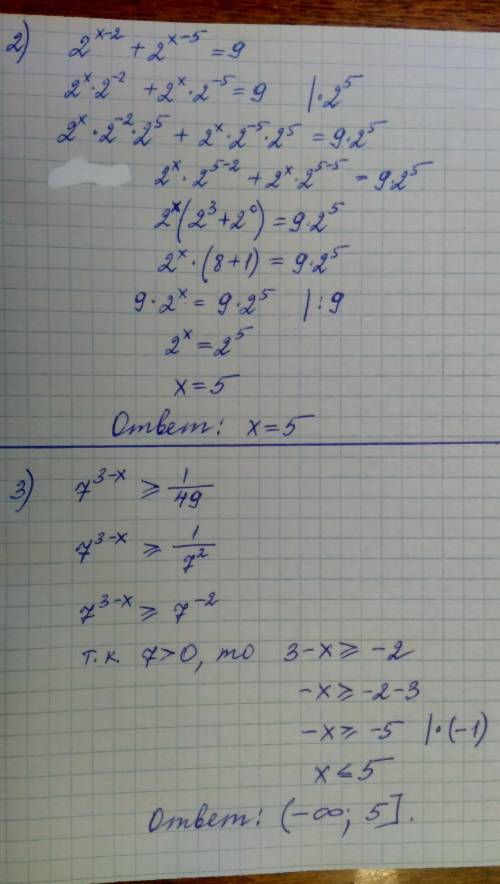 2) 2^{x-2} + 2^{x-5} = 9
2^x · 2^{-2} + 2^x · 2^{-5} = 9 | · 2^5
2^x · 2^{-2} · 2^5 + 2^x · 2^{-5} · 2^5 = 9 · 2^5
2^x · 2^{5-2} + 2^x · 2^{5-5} = 9 · 2^5
2^x (2^3 + 2^0) = 9 · 2^5
2^x · (8+1) = 9 · 2^5
9 · 2^x = 9 · 2^5 | : 9
2^x = 2^5
x = 5
Ответ: x = 5
3) 7^{3-x} ⩾ 1/49
7^{3-x} ⩾ 1/7^2
7^{3-x} ⩾ 7^{-2}
т.к. 7>0, то 3-x ⩾ -2
-x ⩾ -2-3
-x ⩾ -5 | · (-1)
x ⩽ 5
Ответ: (-∞; 5].